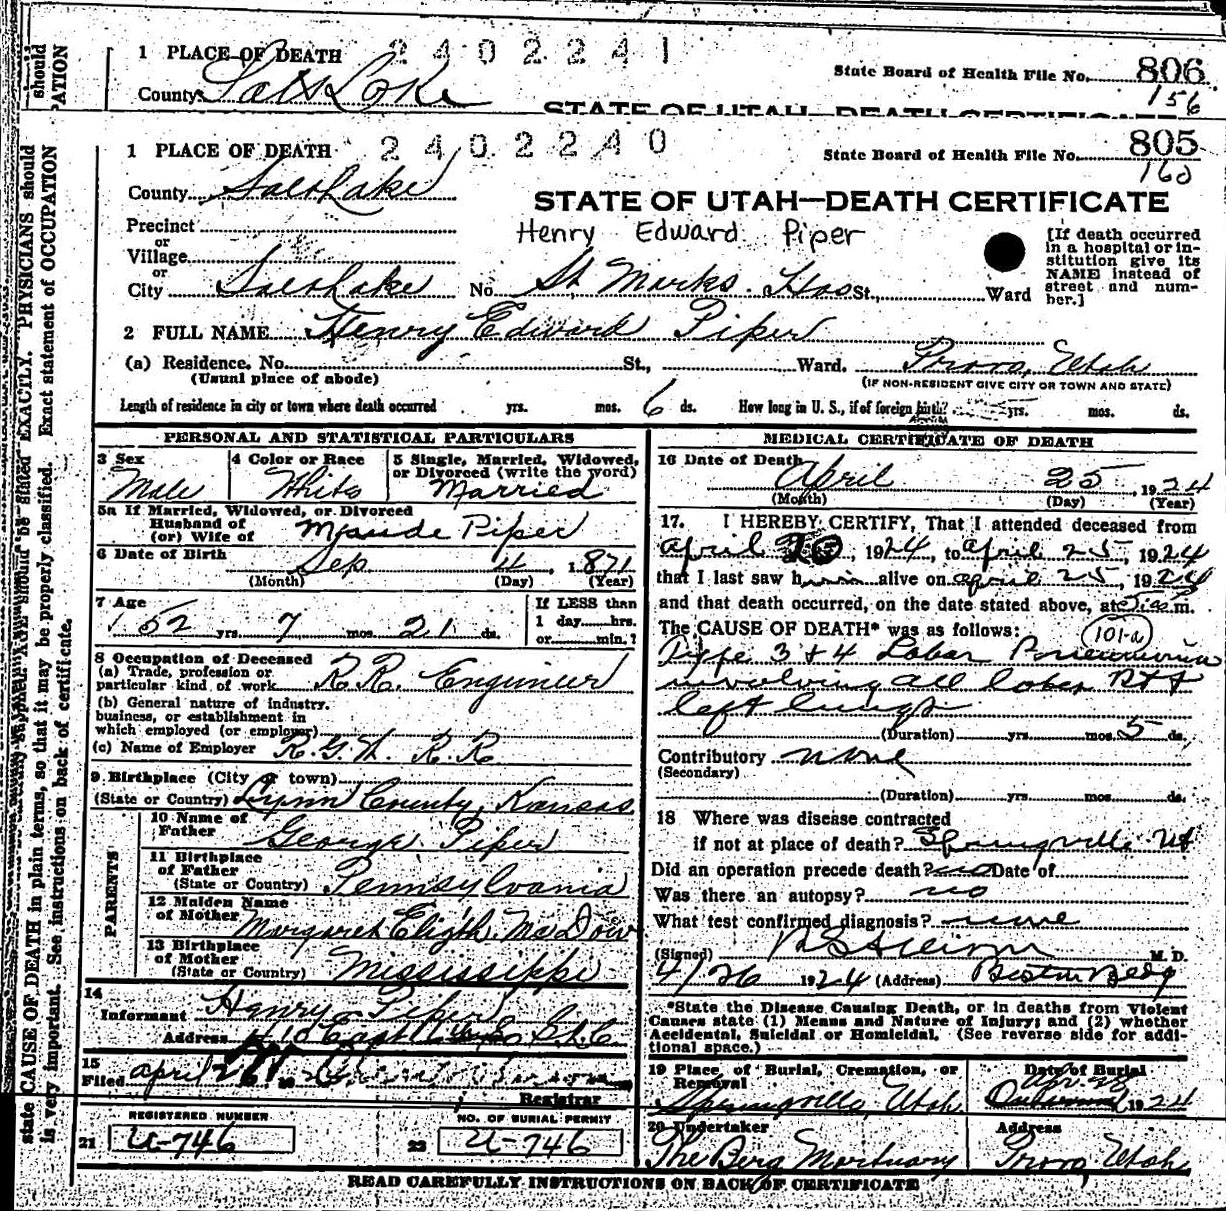 should
PATION
1 PLACE OF DEATH 2402241
County Salt Lake
State Board of Health File No. 806
156
STATE OF UTAH—DEATH CERTIFICATE
1 PLACE OF DEATH 2402240
State Board of Health File No. 805
160
County Salt Lake
STATE OF UTAH—DEATH CERTIFICATE
Precinct
Henry Edward Piper
or
Village
or
City Salt Lake No. St Marks. Hos St., Ward
[If death occurred
in a hospital or in-
stitution give its
NAME instead of
street and num-
ber.]
2 FULL NAME Henry Edward Piper
(a) Residence. No. St., Ward. Provo, Utah
(Usual place of abode)
(IF NON-RESIDENT GIVE CITY OR TOWN AND STATE)
Length of residence in city or town where death occurred yrs. mos. 6 ds. How long in U. S., if of foreign birth? yrs. mos. ds.
PERSONAL AND STATISTICAL PARTICULARS
3 Sex
Male
4 Color or Race
White
5 Single, Married, Widowed,
or Divorced (write the word)
Married
5a If Married, Widowed, or Divorced
Husband of
(or) Wife of Maude Piper
6 Date of Birth
Sep 4, 1871
(Month) (Day) (Year)
7 Age
52 yrs. 7 mos. 21 ds.
If LESS than
1 day hrs.
or min.?
8 Occupation of Deceased
(a) Trade, profession or
particular kind of work R.R. Engineer
(b) General nature of industry,
business, or establishment in
which employed (or employer)
(c) Name of Employer R.G.W. R.R
9 Birthplace (City or town)
(State or Country) Lynn County, Kansas
PARENTS
10 Name of
Father George Piper
11 Birthplace
of Father
(State or Country) Pennsylvania
12 Maiden Name
of Mother Margaret Elizth. McDow
13 Birthplace
of Mother
(State or Country) Mississippi
14
Informant Henry Piper
Address 410 East S.L.C
15
Filed April
Registrar
REGISTERED NUMBER
21 U-746
NO. OF BURIAL PERMIT
22 U-746
MEDICAL CERTIFICATE OF DEATH
16 Date of Death
April 25, 1924
(Month) (Day) (Year)
17. I HEREBY CERTIFY, That I attended deceased from
April 20, 1924, to April 25, 1924
that I last saw him alive on April 25, 1924
and that death occurred, on the date stated above, at m.
The CAUSE OF DEATH* was as follows: 101-a
Type 3 & 4 Lobar Pneumonia
involving all lobes Rt &
left lungs
(Duration) yrs. mos. 5 ds.
Contributory none
(Secondary)
(Duration) yrs. mos. ds.
18 Where was disease contracted
if not at place of death? Springville Ut
Did an operation precede death? no Date of
Was there an autopsy? no
What test confirmed diagnosis? none
(Signed) M. D.
4/26 1924 (Address) Boston Bldg
*State the Disease Causing Death, or in deaths from Violent
Causes state (1) Means and Nature of Injury; and (2) whether
Accidental, Suicidal or Homicidal. (See reverse side for addi-
tional space.)
19 Place of Burial, Cremation, or
Removal
Springville, Utah
Date of Burial
Apr. 28 1924
20 Undertaker
The Berg Mortuary
Address
Provo, Utah
READ CAREFULLY INSTRUCTIONS ON BACK OF CERTIFICATE